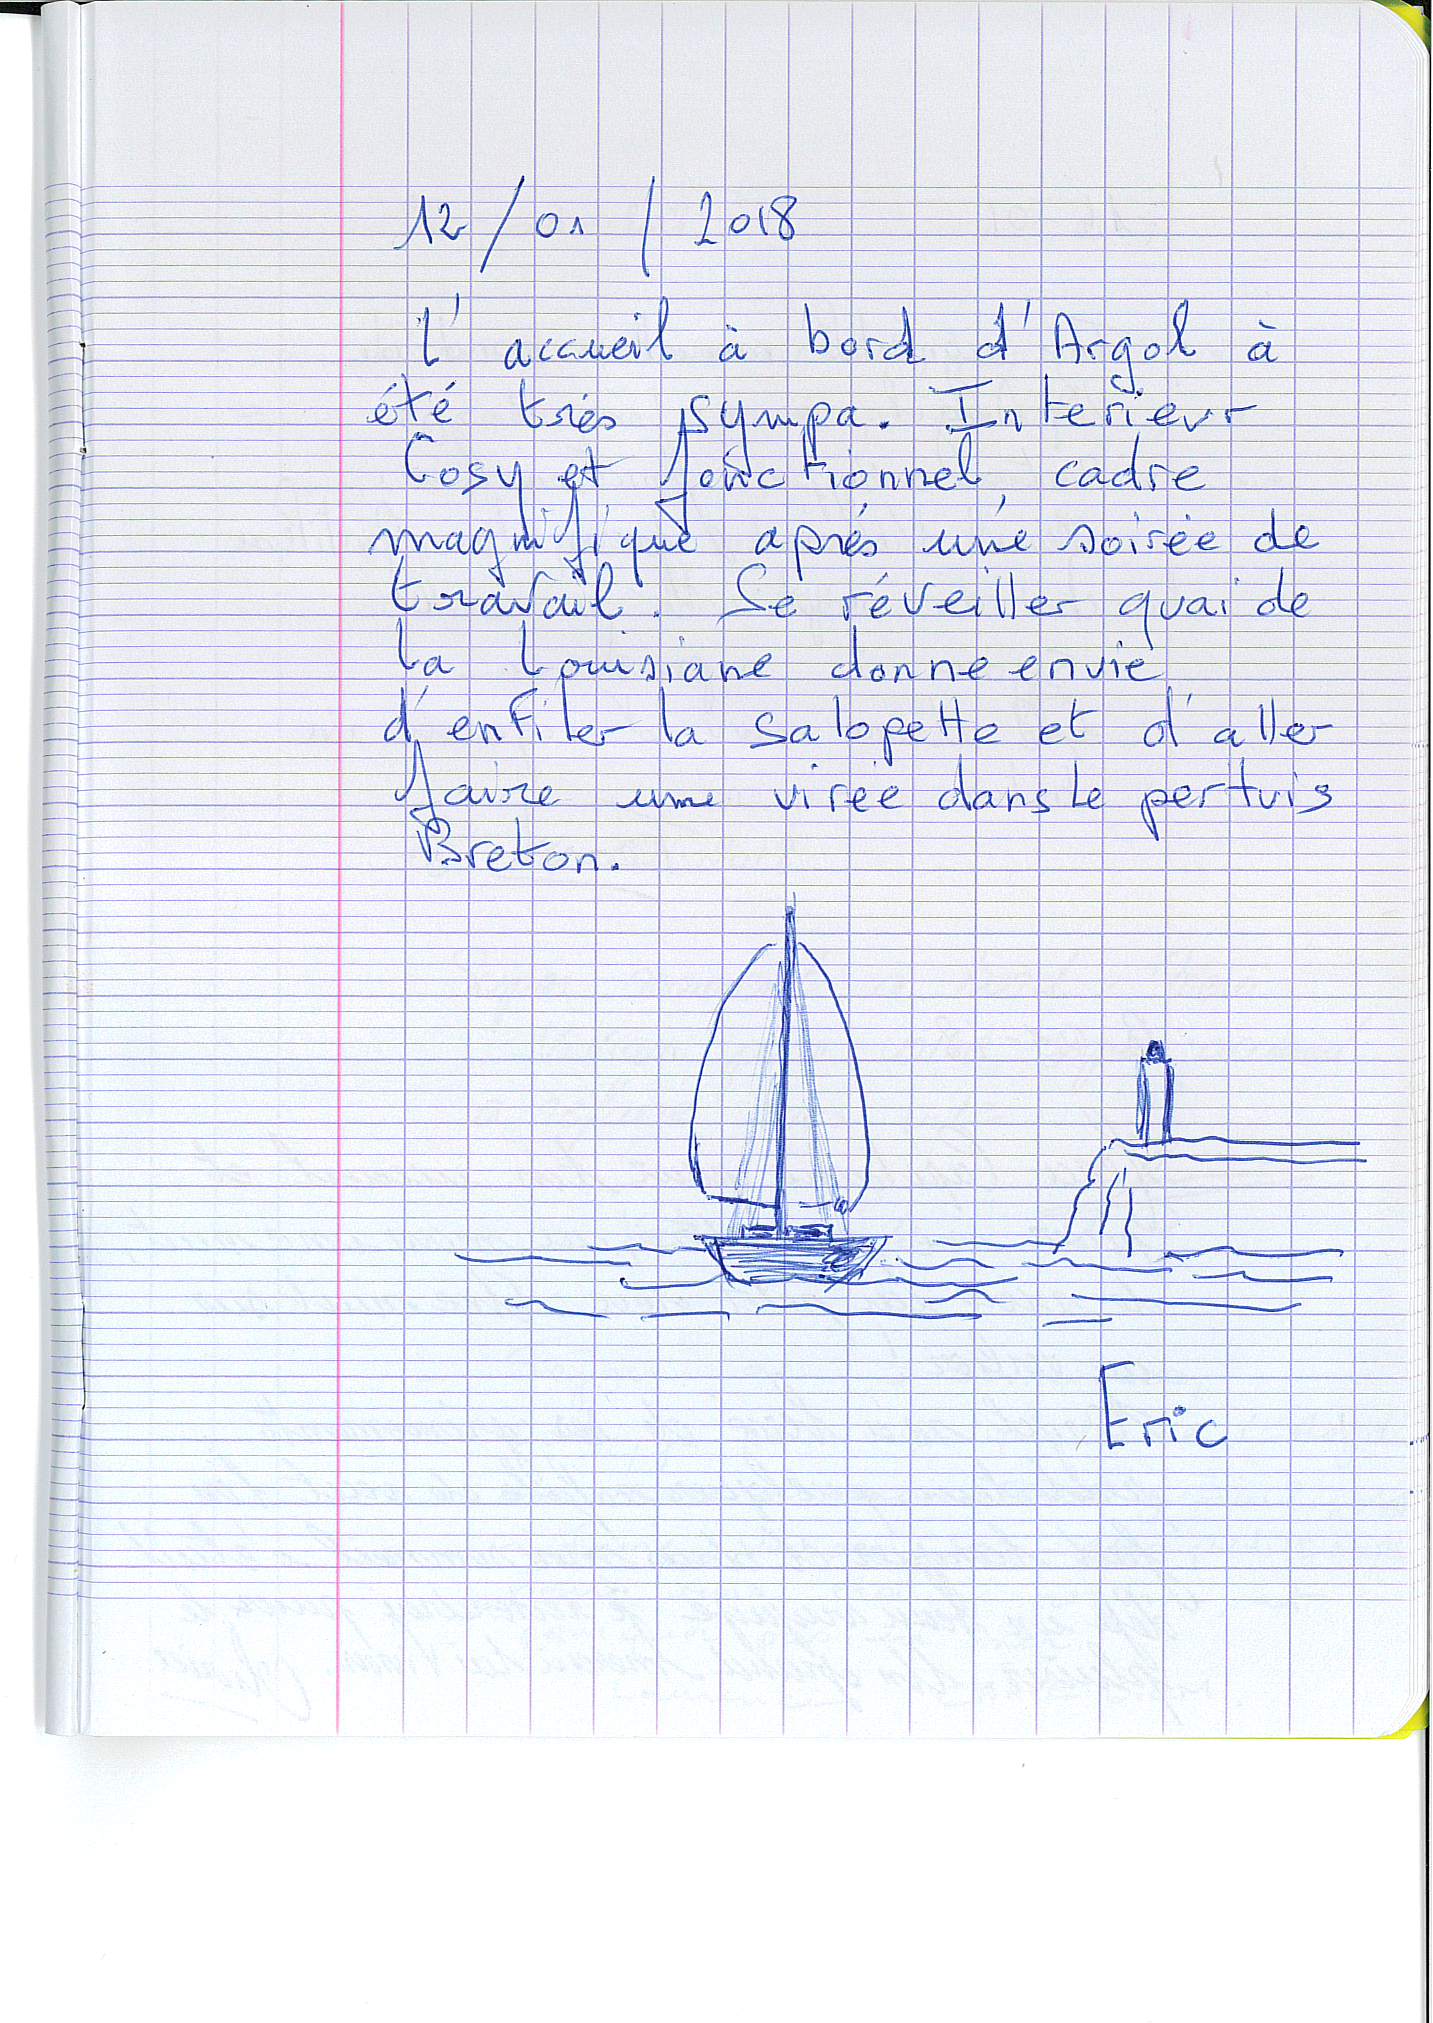 12/01/2018
L'accueil à bord d'Argol à
été très sympa. Interieur
Cosy et fonctionnel, cadre
magnifique après une soirée de
travail. Se réveiller quai de
la Louisiane donne envie
d'enfiler la salopette et d'aller
faire une virée dans le pertuis
Breton.
Eric